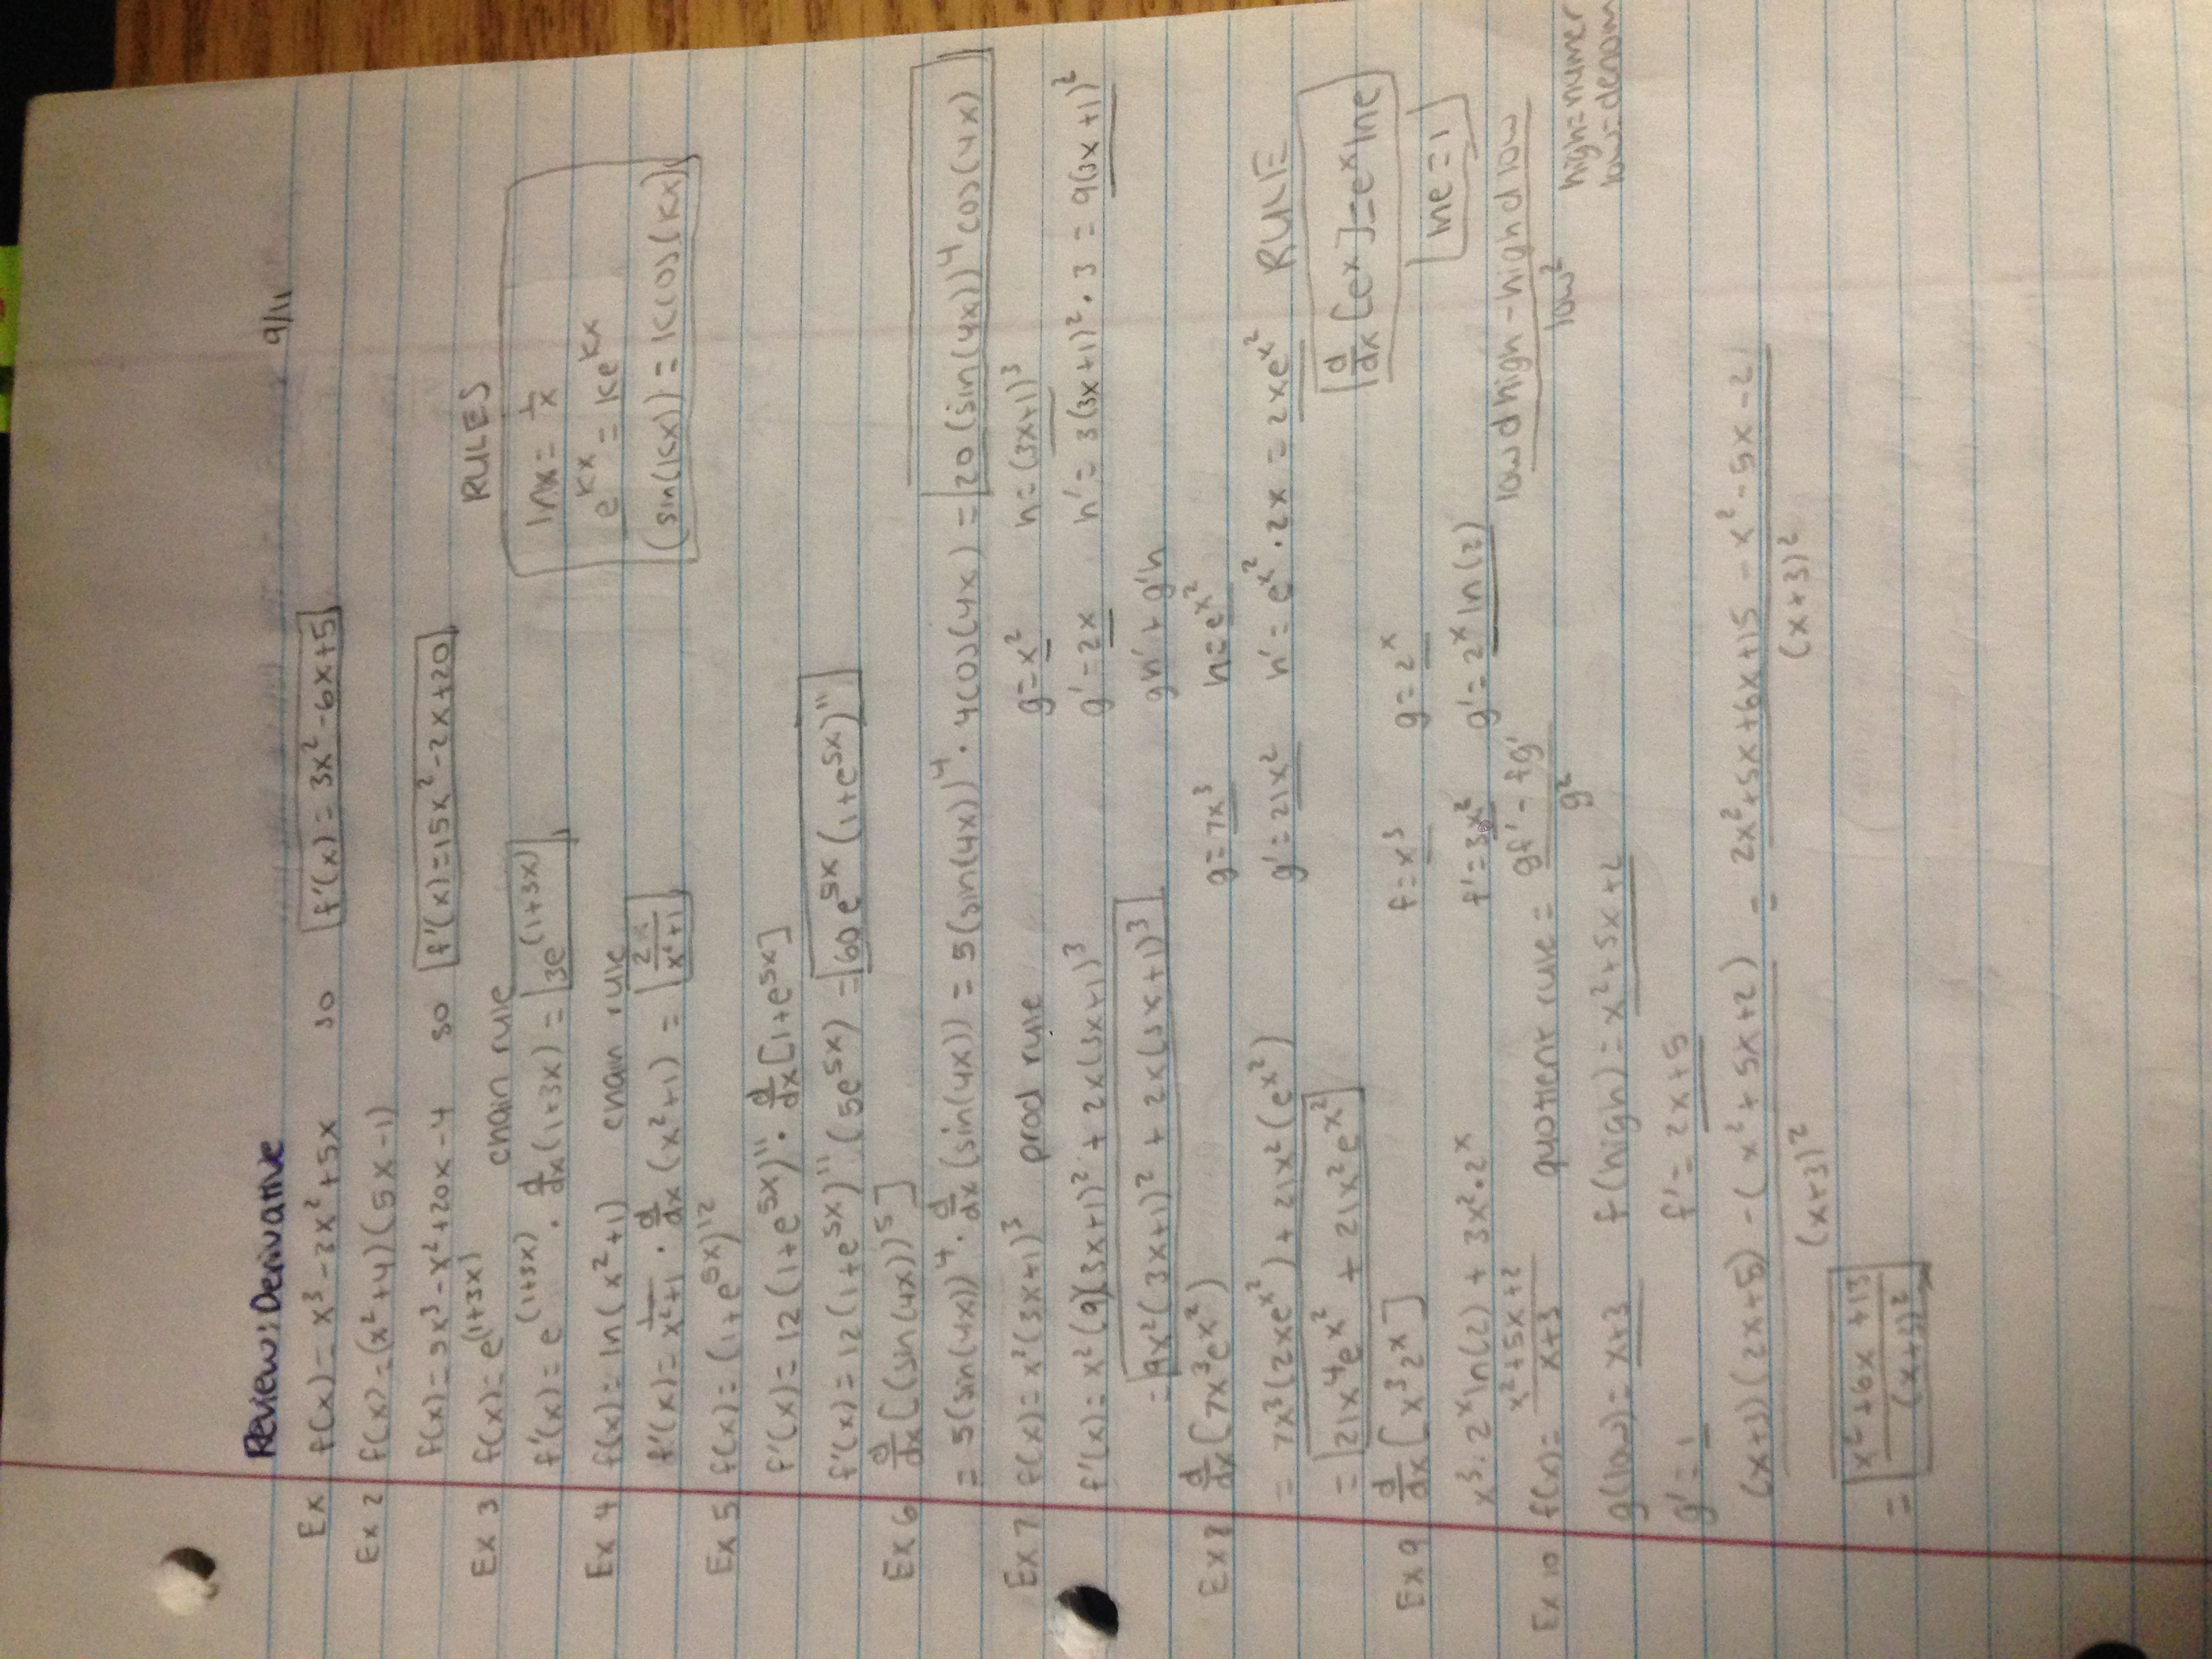 Review: Derivative 9/11
Ex f(x) = x³ - 3x² + 5x so f'(x) = 3x² - 6x + 5
Ex 2 f(x) = (x² + 4)(5x - 1)
f(x) = 5x³ - x² + 20x - 4 so f'(x) = 15x² - 2x + 20
RULES
Ex 3 f(x) = e^(1+3x) chain rule
f'(x) = e^(1+3x) · d/dx (1+3x) = 3e^(1+3x)
lnx = 1/x
e^kx = ke^kx
(sin(kx)) = kcos(kx)
Ex 4 f(x) = ln(x² + 1) chain rule
f'(x) = 1/x²+1 · d/dx (x² + 1) = 2x/x²+1
Ex 5 f(x) = (1+e^5x)^12
f'(x) = 12(1+e^5x)^11 · d/dx [1+e^5x]
f'(x) = 12(1+e^5x)^11 (5e^5x) = 60e^5x (1+e^5x)^11
Ex 6 d/dx [(sin(4x))^5]
= 5(sin(4x))^4 · d/dx (sin(4x)) = 5(sin(4x))^4 · 4cos(4x) = 20(sin(4x))^4 cos(4x)
Ex 7 f(x) = x²(3x+1)³ prod rule g = x² h = (3x+1)³
f'(x) = x²(9)(3x+1)² + 2x(3x+1)³ g' = 2x h' = 3(3x+1)² · 3 = 9(3x+1)²
= 9x²(3x+1)² + 2x(3x+1)³ gh' + g'h
Ex 8 d/dx [7x³e^x²) g = 7x³ h = e^x²
= 7x³(2xe^x²) + 21x²(e^x²) g' = 21x² h' = e^x² · 2x = 2xe^x² RULE
= 21x⁴e^x² + 21x²e^x² d/dx [e^x] = e^x lne
Ex 9 d/dx [x³2^x] f = x³ g = 2^x lne = 1
x³ · 2^x ln(2) + 3x² · 2^x f' = 3x² g' = 2^x ln(2)
Ex 10 f(x) = x²+5x+2/x+3 quotient rule = gf' - fg'/g² low d high - high d low/low²
g(low) = x+3 f(high) = x²+5x+2 high = numer
low = denom
g' = 1 f' = 2x+5
(x+3)(2x+5) - (x²+5x+2)/(x+3)² = 2x²+5x+6x+15 - x² - 5x - 2/(x+3)²
= x²+6x+13/(x+3)²